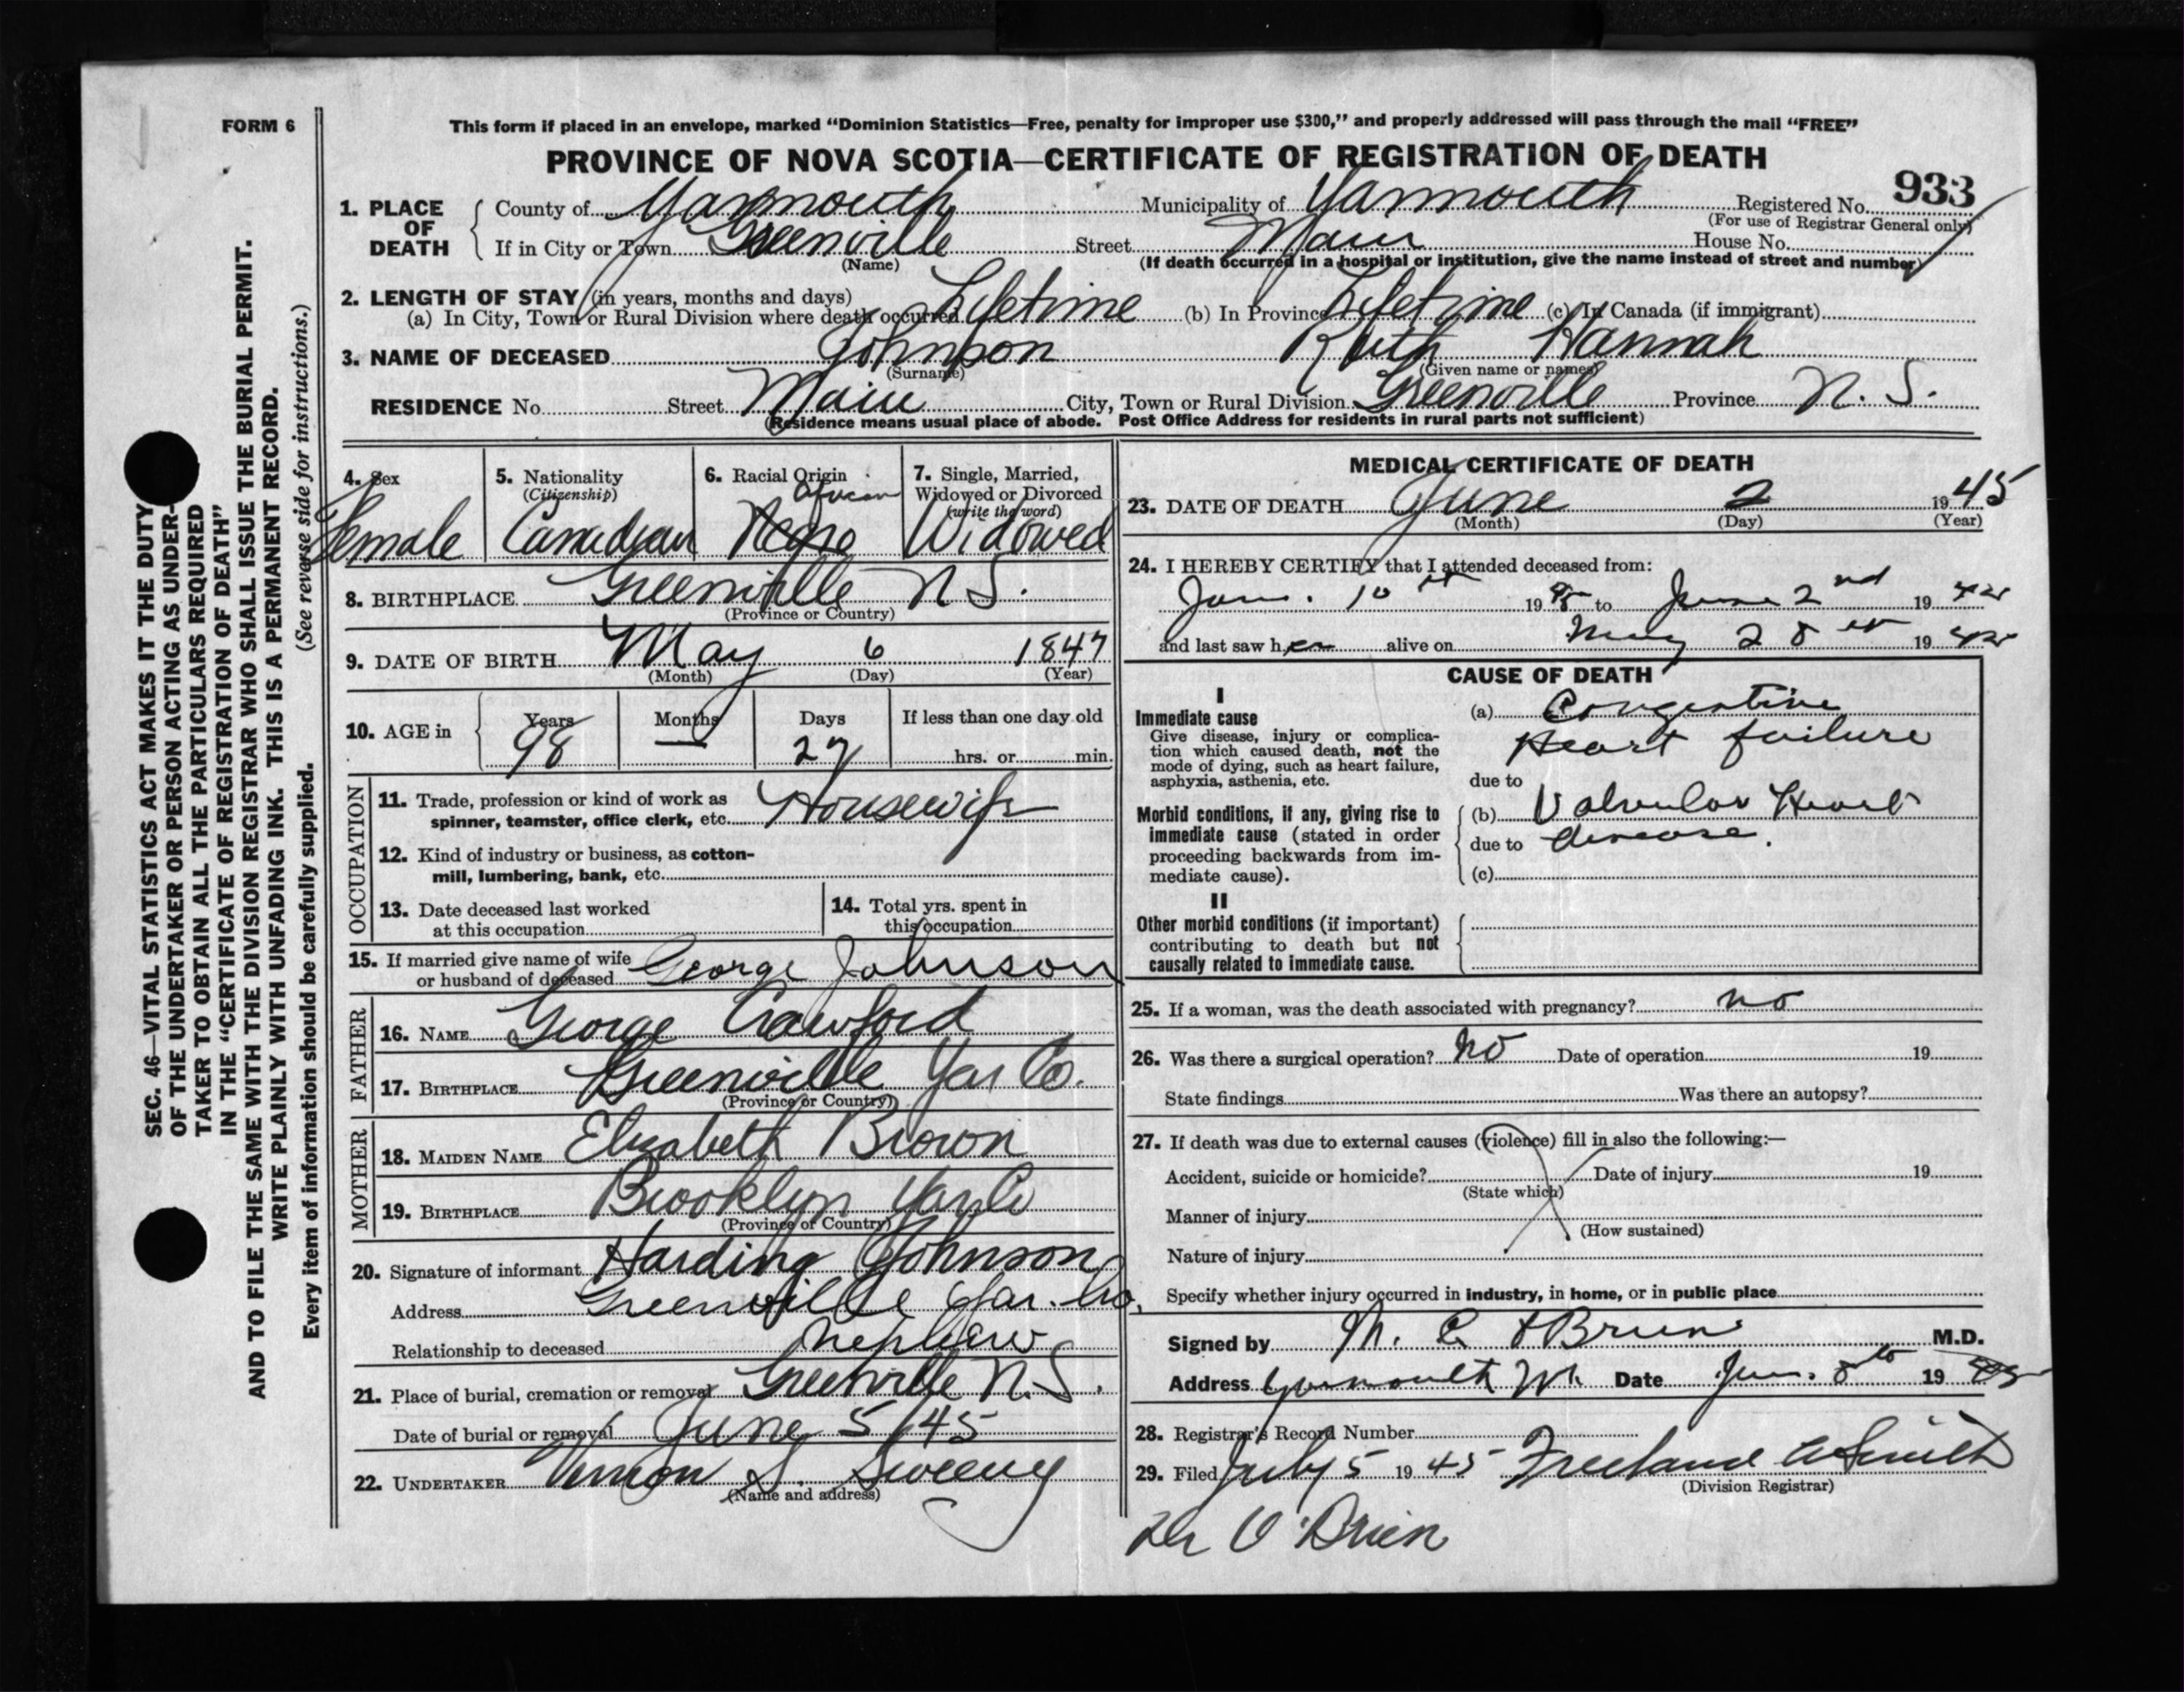 FORM 6
This form if placed in an envelope, marked "Dominion Statistics—Free, penalty for improper use $300," and properly addressed will pass through the mail "FREE"
PROVINCE OF NOVA SCOTIA—CERTIFICATE OF REGISTRATION OF DEATH
933
1. PLACE OF DEATH
County of Yarmouth Municipality of Yarmouth Registered No.
(For use of Registrar General only)
If in City or Town Greenville Street Main House No.
(Name)
(If death occurred in a hospital or institution, give the name instead of street and number)
2. LENGTH OF STAY (in years, months and days)
(a) In City, Town or Rural Division where death occurred Lifetime (b) In Province Lifetime (c) In Canada (if immigrant)
3. NAME OF DECEASED Johnson Ruth Hannah
(Surname) (Given name or names)
RESIDENCE No. Street Main City, Town or Rural Division Greenville Province N. S.
(Residence means usual place of abode. Post Office Address for residents in rural parts not sufficient)
SEC. 46—VITAL STATISTICS ACT MAKES IT THE DUTY
OF THE UNDERTAKER OR PERSON ACTING AS UNDER-
TAKER TO OBTAIN ALL THE PARTICULARS REQUIRED
IN THE "CERTIFICATE OF REGISTRATION OF DEATH"
AND TO FILE THE SAME WITH THE DIVISION REGISTRAR WHO SHALL ISSUE THE BURIAL PERMIT.
WRITE PLAINLY WITH UNFADING INK. THIS IS A PERMANENT RECORD.
Every item of information should be carefully supplied. (See reverse side for instructions.)
4. Sex
Female
5. Nationality
(Citizenship)
Canadian
6. Racial Origin
African
Negro
7. Single, Married,
Widowed or Divorced
(write the word)
Widowed
8. BIRTHPLACE Greenville N S.
(Province or Country)
9. DATE OF BIRTH May 6 1847
(Month) (Day) (Year)
10. AGE in
Years Months Days If less than one day old
98 — 27 hrs. or min.
OCCUPATION
11. Trade, profession or kind of work as
spinner, teamster, office clerk, etc. Housewife
12. Kind of industry or business, as cotton-
mill, lumbering, bank, etc.
13. Date deceased last worked
at this occupation
14. Total yrs. spent in
this occupation
15. If married give name of wife
or husband of deceased George Johnson
FATHER
16. NAME George Crawford
17. BIRTHPLACE Greenville Yar Co.
(Province or Country)
MOTHER
18. MAIDEN NAME Elizabeth Brown
19. BIRTHPLACE Brooklyn Yar Co
(Province or Country)
20. Signature of informant Harding Johnson
Address Greenville Yar. Co.
Relationship to deceased nephew
21. Place of burial, cremation or removal Greenville N.S.
Date of burial or removal June 5/45
22. UNDERTAKER Vernon S. Sweeny
(Name and address)
MEDICAL CERTIFICATE OF DEATH
23. DATE OF DEATH June 2 1945
(Month) (Day) (Year)
24. I HEREBY CERTIFY that I attended deceased from:
Jan. 10th 1945 to June 2nd 1945
and last saw her alive on May 28th 1945
CAUSE OF DEATH
I
Immediate cause
Give disease, injury or complica-
tion which caused death, not the
mode of dying, such as heart failure,
asphyxia, asthenia, etc.
(a) Congestive
Heart failure
due to
Morbid conditions, if any, giving rise to
immediate cause (stated in order
proceeding backwards from im-
mediate cause).
(b) Valvular Heart
due to disease.
(c)
II
Other morbid conditions (if important)
contributing to death but not
causally related to immediate cause.
25. If a woman, was the death associated with pregnancy? no
26. Was there a surgical operation? no Date of operation 19
State findings Was there an autopsy?
27. If death was due to external causes (violence) fill in also the following:—
Accident, suicide or homicide? Date of injury 19
(State which)
Manner of injury
(How sustained)
Nature of injury
Specify whether injury occurred in industry, in home, or in public place
Signed by M. C. O'Brien M.D.
Address Yarmouth Date 8th 1945
28. Registrar's Record Number
29. Filed July 5 1945 Freeland A Smith
(Division Registrar)
Dr O'Brien